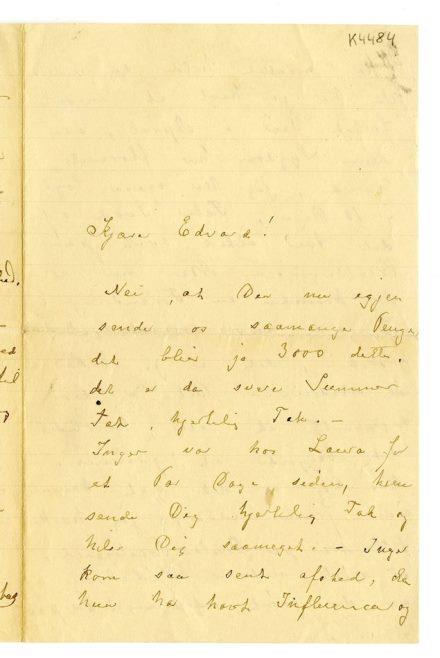 K4484
Kjære Edvard!
Nei, at Der nu igjen
sende os saamange Penge,
det blir jo 3000 dette,
det er da svere Summer
Tak, hjertelig Tak. —
Inger var hos Laura for
et Par Dage siden, hun
sende Dig hjertelig Tak og
hilse Dig saameget. — Inger
kom saa sent afsted, da
hun har havt Influenca og